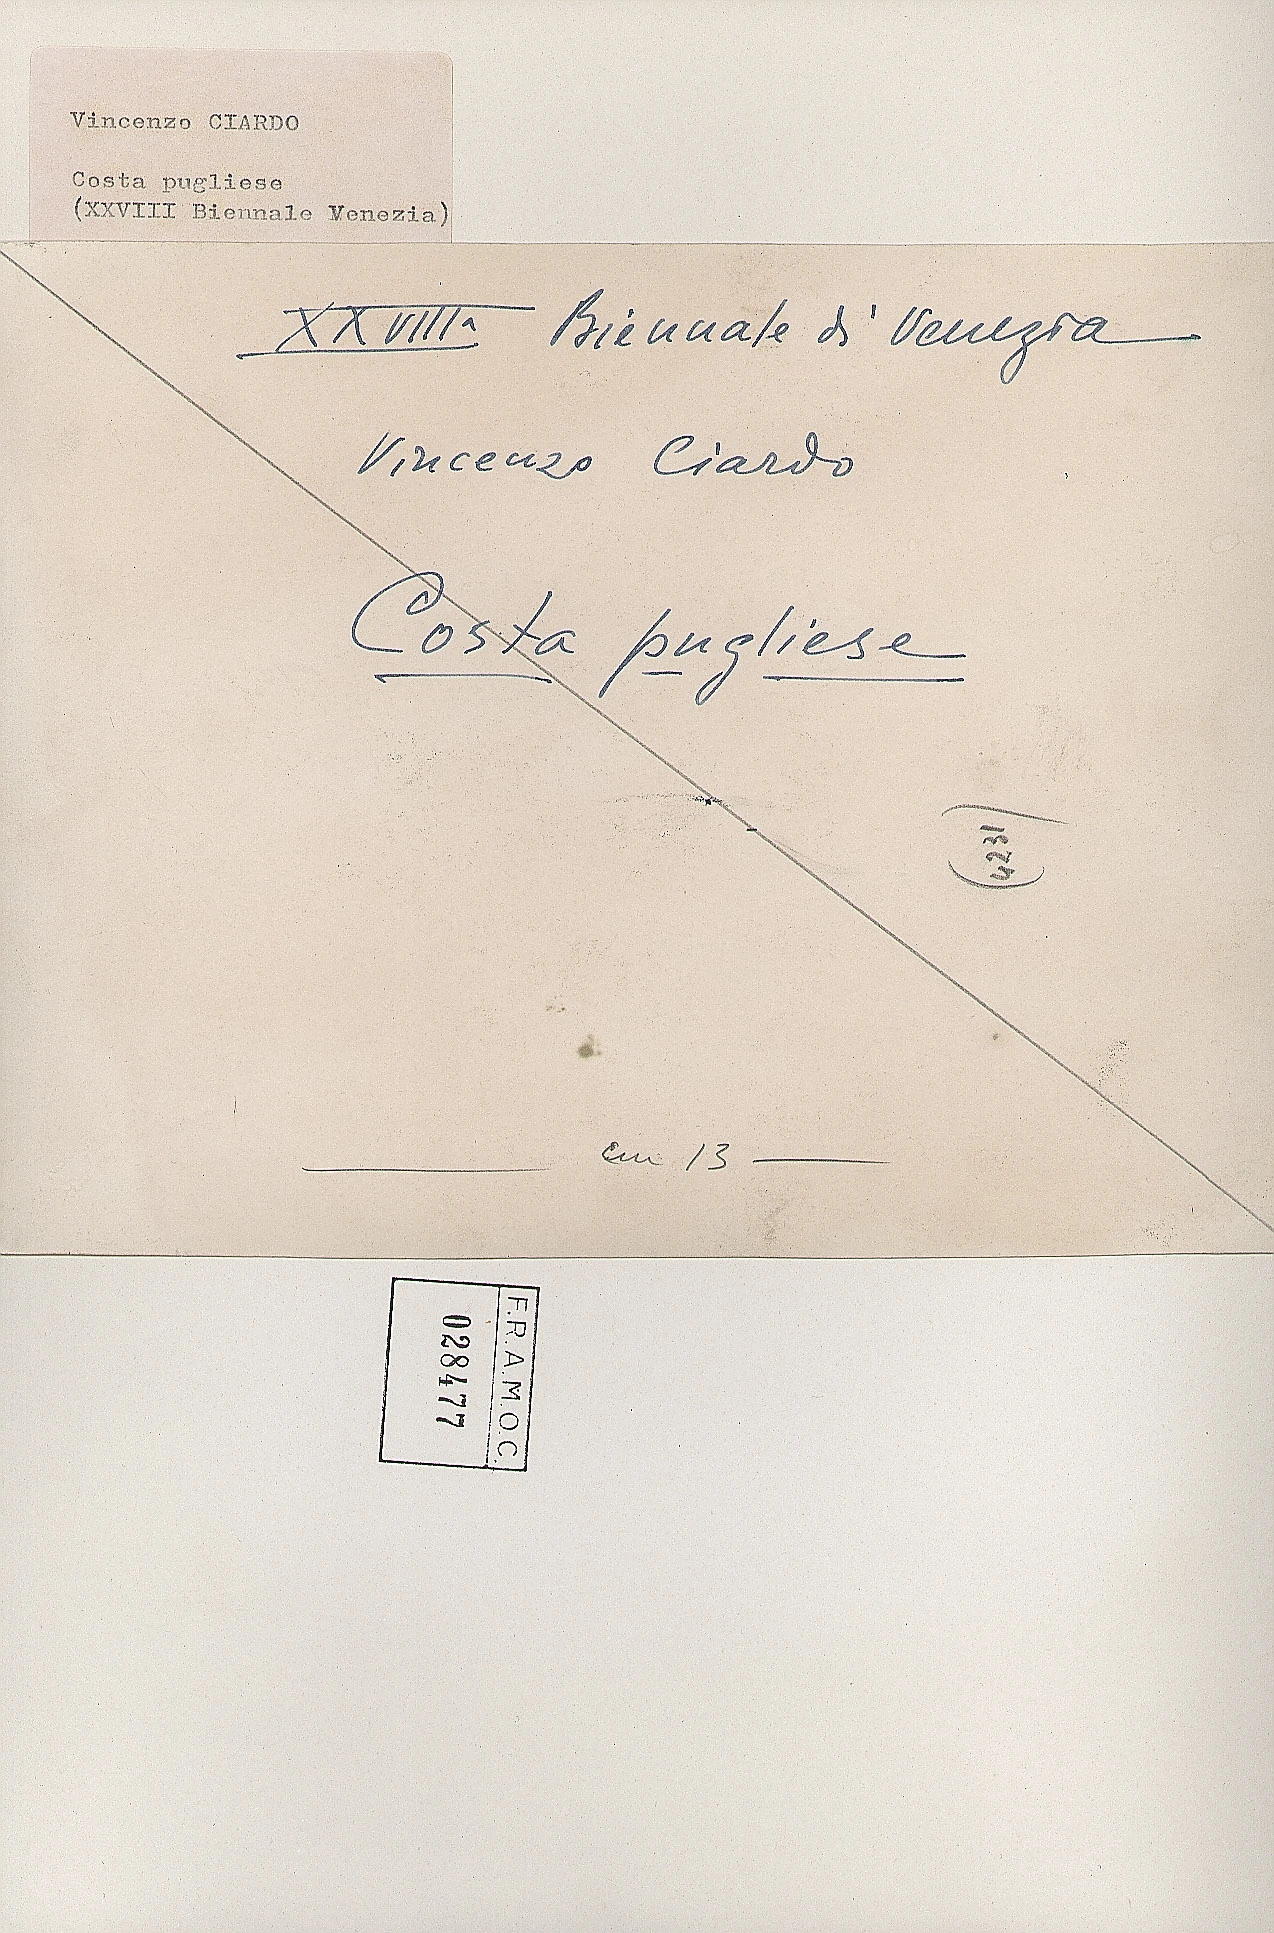 Vincenzo CIARDO
Costa pugliese
(XXVIII Biennale Venezia)
XXVIIIa Biennale di Venezia
Vincenzo Ciardo
Costa pugliese
(4231)
cm 13
F.R.A.M.O.C.
028477